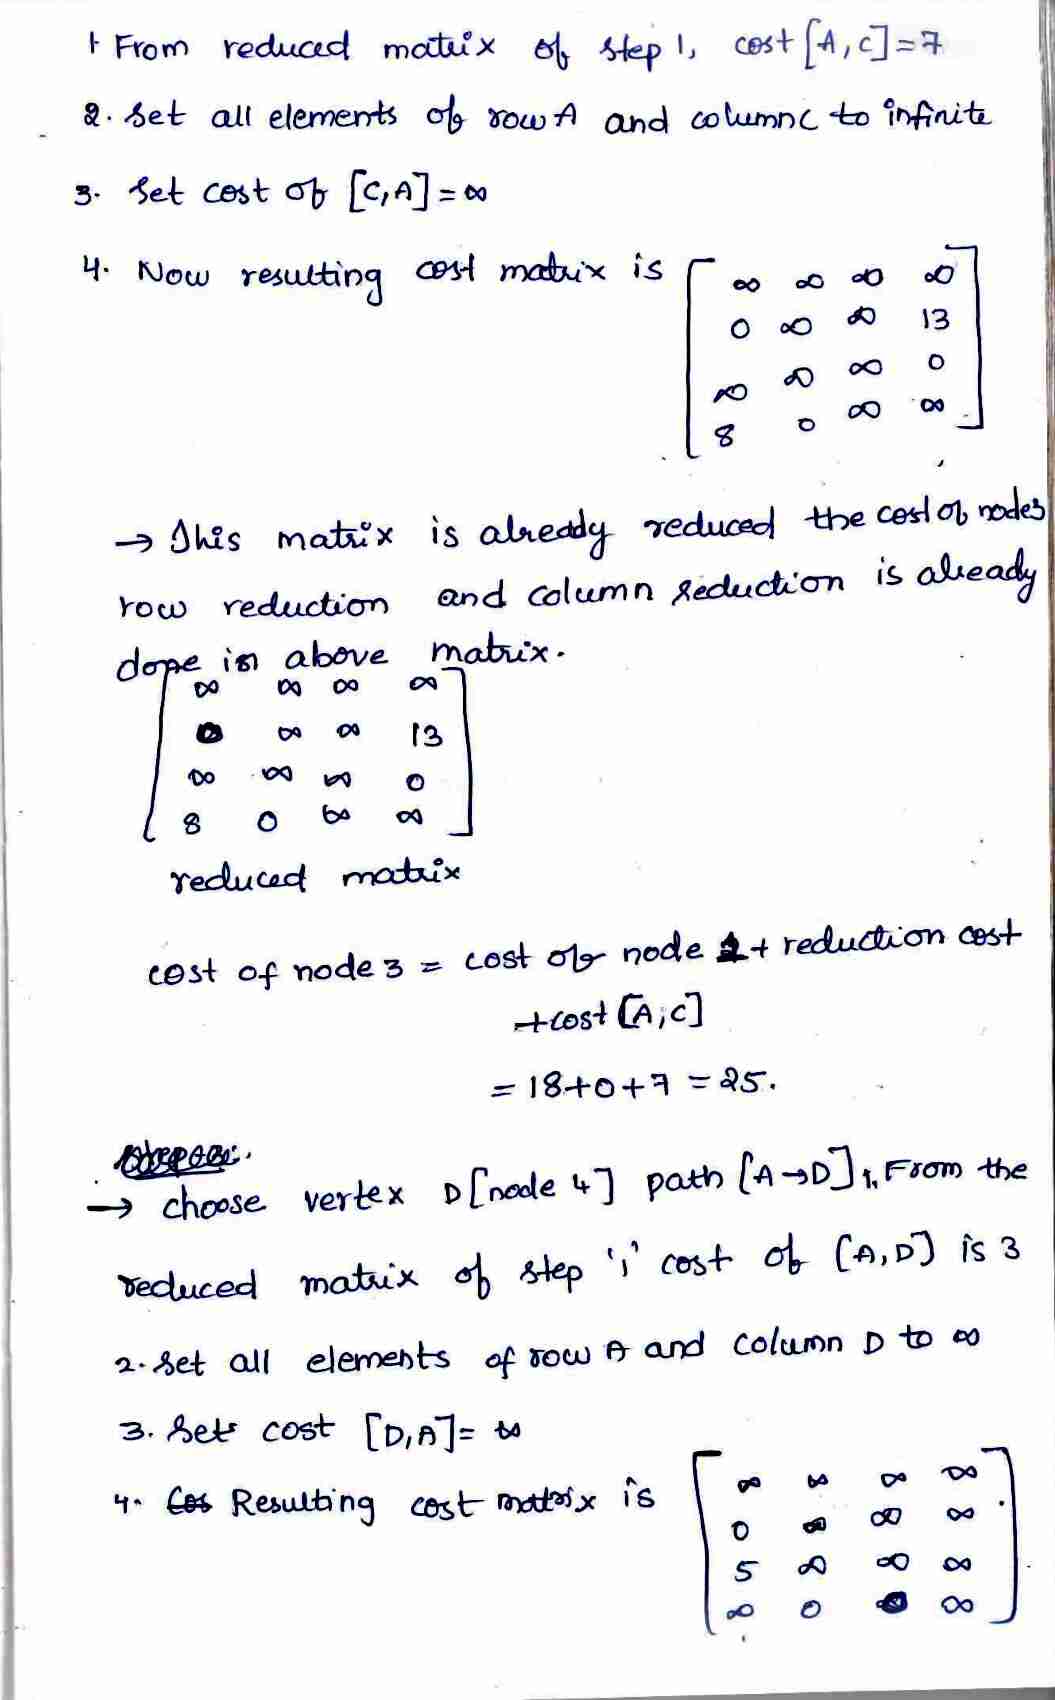 1 From reduced matrix of step 1, cost [A, C] = 7
2. Set all elements of row A and column C to infinite
3. Set cost of [C,A] = ∞
4. Now resulting cost matrix is
∞ ∞ ∞ ∞
0 ∞ ∞ 13
∞ ∞ ∞ 0
8 0 ∞ ∞
→ This matrix is already reduced the cost of nodes
row reduction and column reduction is already
done in above matrix.
∞ ∞ ∞ ∞
0 ∞ ∞ 13
∞ ∞ ∞ 0
8 0 ∞ ∞
reduced matrix
cost of node 3 = cost of node 1 + reduction cost
+cost [A,C]
= 18+0+7 = 25.
→ choose vertex D[node 4] path [A→D] 1. From the
reduced matrix of step '1' cost of [A,D] is 3
2. Set all elements of row A and column D to ∞
3. Set cost [D,A] = ∞
4. Cos Resulting cost matrix is
∞ ∞ ∞ ∞
0 ∞ ∞ ∞
5 ∞ ∞ ∞
∞ 0 ∞